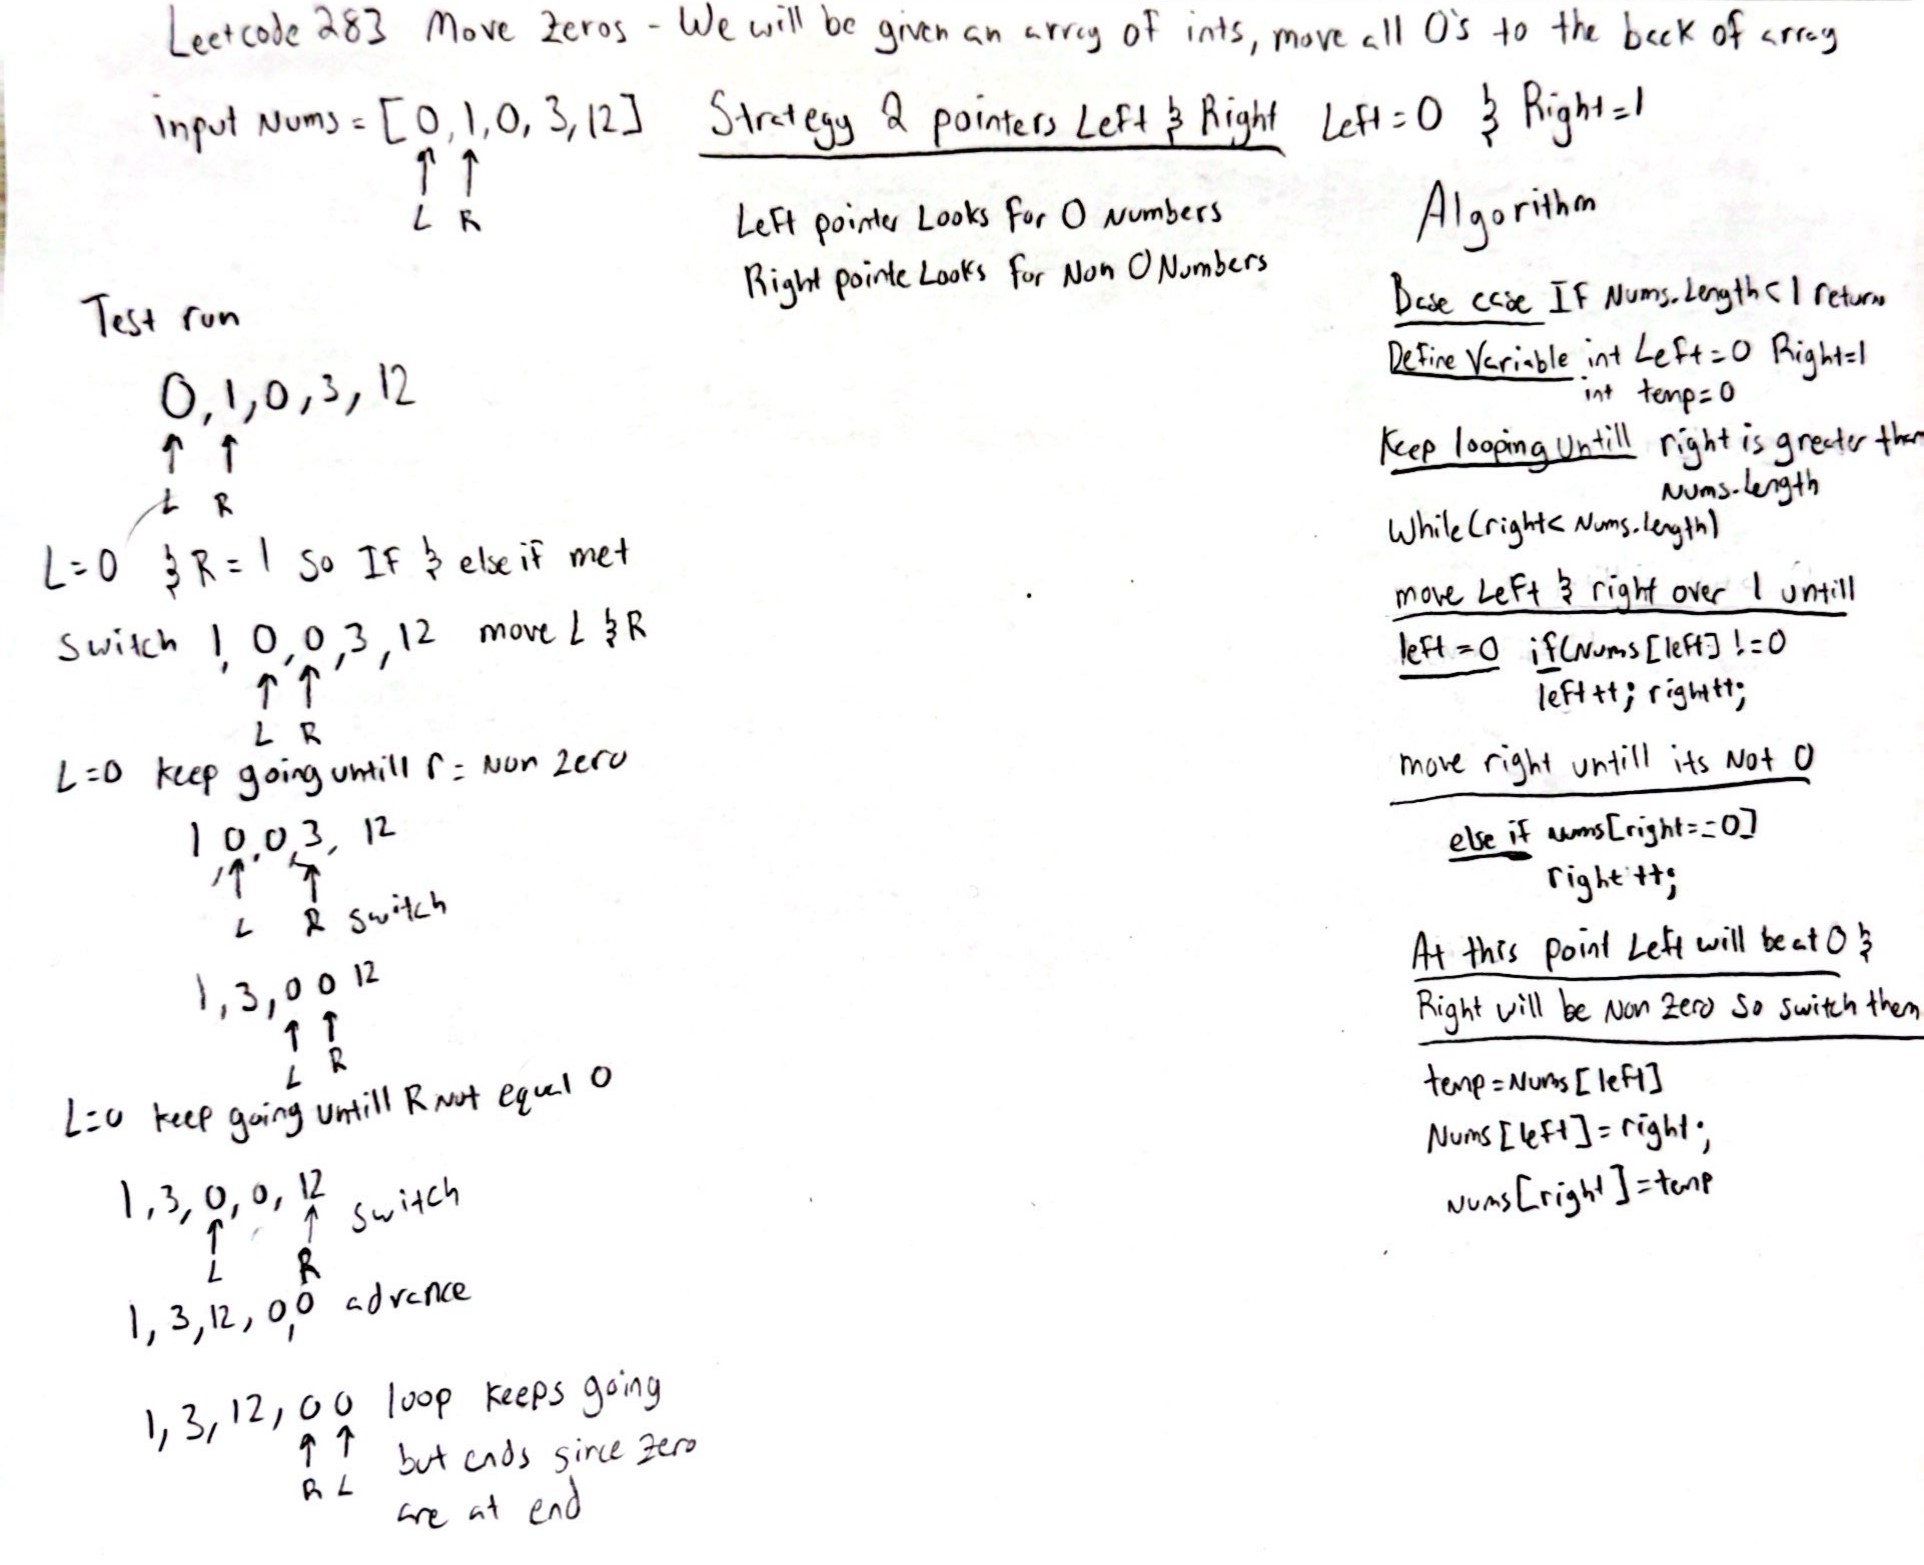 Leetcode 283 Move Zeros - We will be given an array of ints, move all 0's to the back of array
input Nums = [0,1,0, 3,12]
↑ ↑
L R
Strategy 2 pointers Left & Right Left = 0 & Right=1
Left pointer Looks for 0 Numbers
Right pointe Looks for Non 0 Numbers
Test run
0,1,0,3, 12
↑ ↑
L R
L=0 & R = 1 So IF & else if met
Switch 1, 0,0,3,12 move L & R
↑ ↑
L R
L=0 keep going untill r = Non zero
1,0,0,3, 12
↑ ↑
L R switch
1,3,0 0 12
↑ ↑
L R
L=0 keep going untill R Not equal 0
1,3,0,0,12 switch
↑ ↑
L R
1,3,12,0,0 advance
1,3,12,0 0 loop keeps going
↑ ↑ but ends since zero
R L are at end
Algorithm
Base case IF Nums.Length<1 return
Define Variable int Left=0 Right=1
int temp=0
Keep looping Untill right is greater than
Nums.length
While(right< Nums.length)
move Left & right over 1 untill
left=0 if(Nums[left] !=0
left++; right++;
move right untill its Not 0
else if nums[right==0]
right++;
At this point Left will be at 0 &
Right will be Non Zero So switch them
temp=Nums[left]
Nums[left]=right;
nums[right]=temp